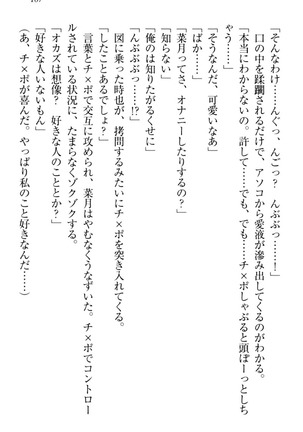 「そんなわけ……んぐっ、んごっ？　んぶぶっ……！」
口の中を蹂躙されるだけで、アソコから愛液が滲み出してくるのがわかる。
「本当にわからないの。許して……でも、でも……チ×ポしゃぶると頭ぼーっとしち
ゃう……」
「そうなんだ、可愛いなあ」
「ばか……」
「菜月ってさ、オナニーしたりするの？」
「知らない」
「俺のは知りたがるくせに」
「んぶぶぶっ……！」
図に乗った時也が、拷問するみたいにチ×ポを突き入れてくる。
「したことあるんだ？」
言葉とチ×ポで交互に攻められ、菜月はやむなくうなずいた。チ×ポでコントロー
ルされている状況に、たまらなくゾクゾクする。
「オカズは想像？　好きな人のこととか？」
「好きな人いないもん」
（あ、チ×ポが喜んだ。やっぱり私のこと好きなんだ……）